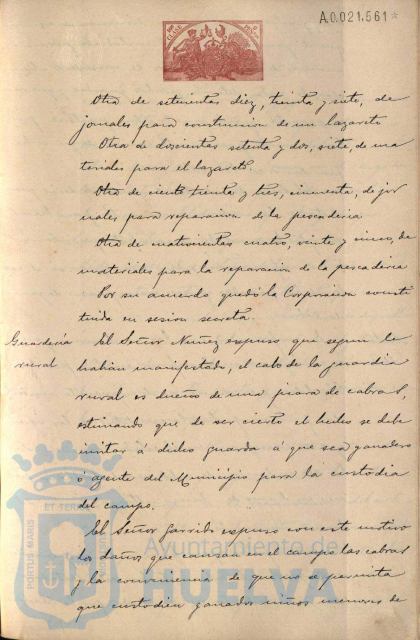 A.0.021.561*
Otra de setecientas diez, treinta y siete, de
jornales para construcción de un lazareto
Otra de doscientas setenta y dos, siete, de ma
teriales para el lazareto.
Otra de ciento treinta y tres, cincuenta, de jor
nales para reparacion de la pescaderia
Otra de cuatrocientas cuatro, veinte y cinco, de
materiales para la reparacion de la pescaderia
Por su acuerdo quedó la Corporación consti
tuida en sesion secreta.
Guardería
rural
El Señor Nuñez expuso que segun le
habian manifestado, el cabo de la guardia
rural es dueño de una piara de cabras,
estimando que de ser cierto el hecho se debe
invitar á dicho guarda á que sea ganadero
ó agente del Municipio para la custodia
del campo.
El Señor Garrido expuso con este motivo
los daños que causan en el campo las cabras
y la conveniencia de que no se permita
que custodien ganados niños menores de
PORTUS MARIS
ET TERRAE
Ayuntamiento de
HUELVA